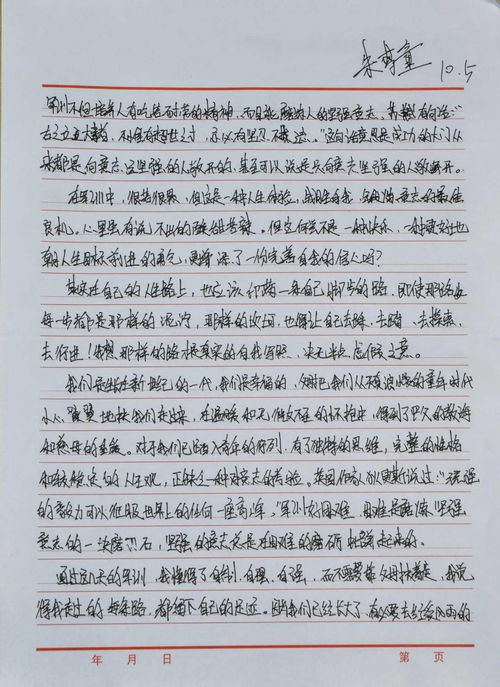 朱 童
10.5
军训不但培养人有吃苦耐劳的精神，而且能磨练人的坚强意志，苏轼有句话：“
古之立大事者，不惟有超世之才，亦必有坚忍不拔之志。”这句话意思是成功的大门从
来都是向意志坚强的人敞开的，甚至可以说是只向意志坚强的人敞开。
在军训中，很苦很累，但这是一种人生体验，战胜自我，锻炼意志的最佳
良机。心里虽有说不出的酸甜苦辣。但它何尝不是一种快乐，一种更好地
朝人生目标前进的勇气，更增添了一份完善自我的信心吗？
其实在自己的人生路上，也应该印满一条自己脚步的路，即使那路
每一步都是那样的泥泞，那样的坎坷，也得让自己去踩、去踏、去摸索，
去行进！我想那样的路才是真实的自我写照，决无半点虚假之意。
我们是生在新世纪的一代，我们是幸福的，父母把我们从不算浪漫的童年时代
小心翼翼地扶我们走过来，在温暖和无微不至的怀抱中，得到了 父的教诲
和慈母的 。对于我们已经迈入青年的行列，有了独特的思维，完整的性格
和较肯定的人生观，正缺乏一种对意志的考验。英国作家狄更斯说过：“顽强
的毅力可以征服世界上的任何一座高峰。”军训好困难，困难是磨炼坚强
意志的一块磨刀石，坚强的意志总是在困难的磨砺中 起来的。
通过 天的军训，我懂得了自制，自强，自强，而不需要靠父母扶着走，我觉
得我走过的每条路，都留下自己的足迹。因为我们已经长大了，有必要去经受风雨的
年 月 日
第 页